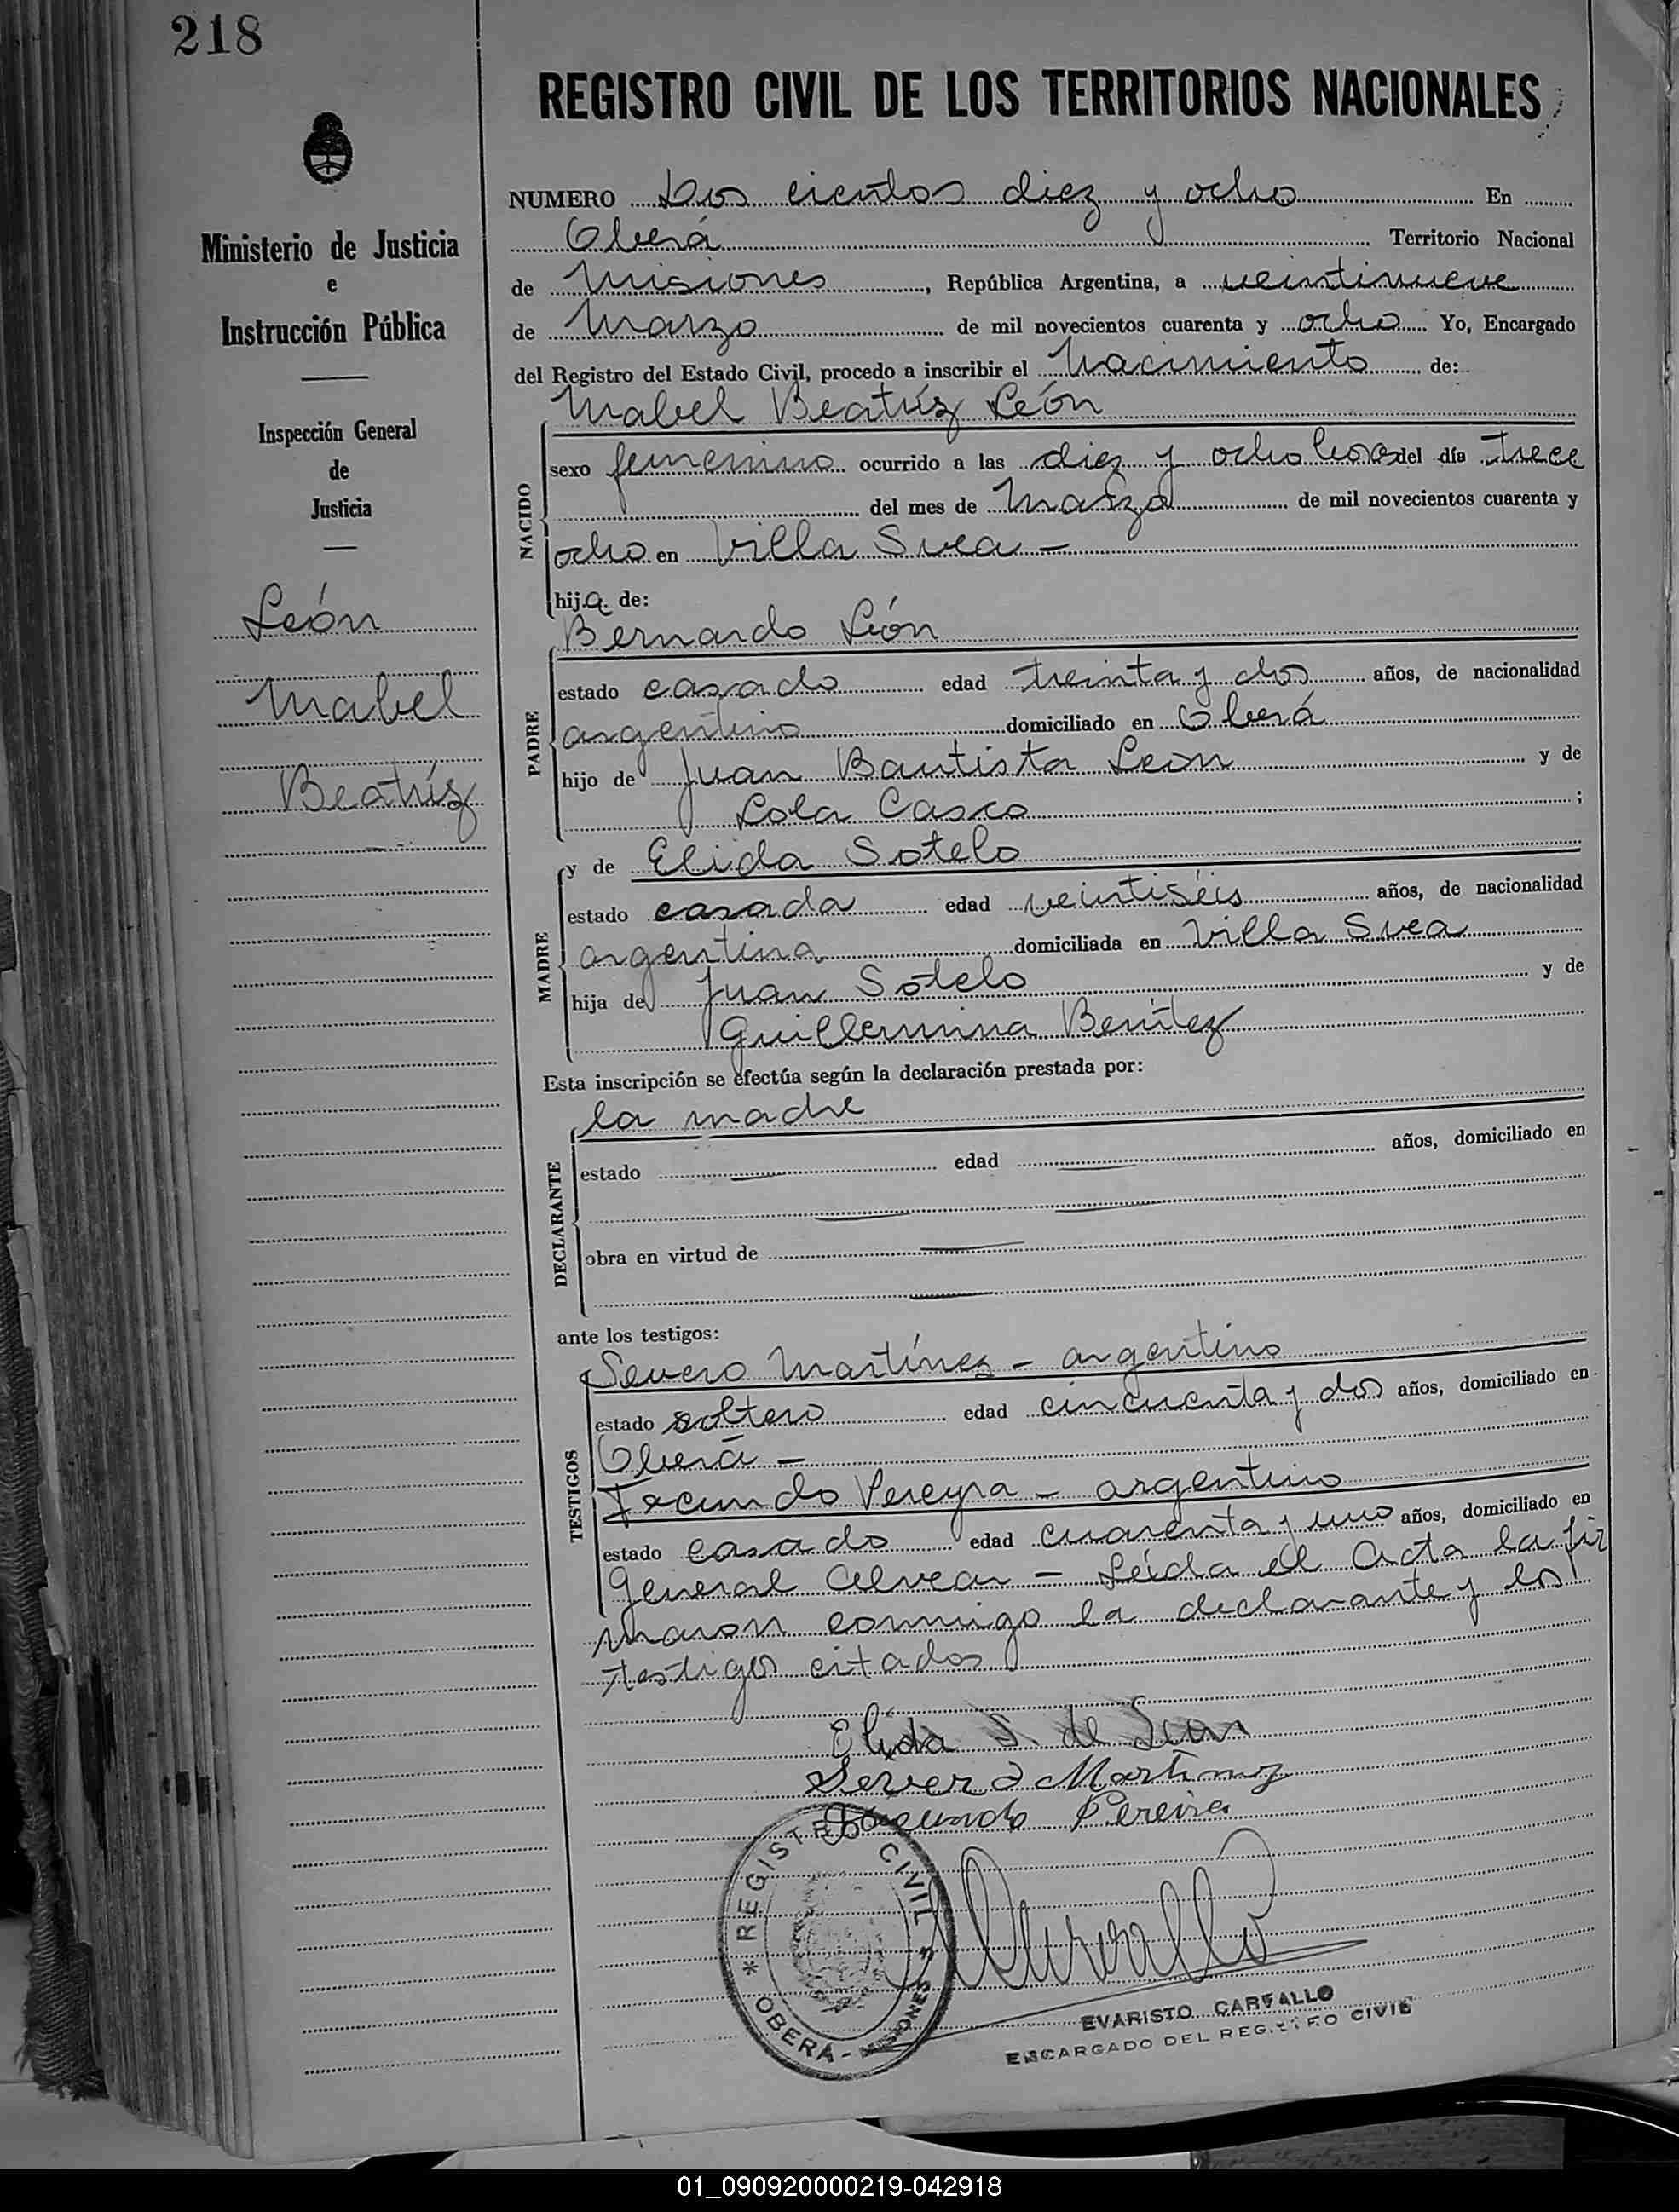 218
Ministerio de Justicia
e
Instrucción Pública
Inspección General
de
Justicia
León
Mabel
Beatríz
REGISTRO CIVIL DE LOS TERRITORIOS NACIONALES
NUMERO Dos cientos diez y ocho En
Oberá Territorio Nacional
de Misiones, República Argentina, a veintinueve
de Marzo de mil novecientos cuarenta y ocho Yo, Encargado
del Registro del Estado Civil, procedo a inscribir el Nacimiento de:
Mabel Beatríz León
NACIDO
sexo femenino ocurrido a las diez y ocho horas del día trece
del mes de Marzo de mil novecientos cuarenta y
ocho en Villa Svea -
hija de:
Bernardo León
PADRE
estado casado edad treinta y dos años, de nacionalidad
argentino domiciliado en Oberá
hijo de Juan Bautista León y de
Lola Casco ;
y de Elida Sotelo
MADRE
estado casada edad veintiséis años, de nacionalidad
argentina domiciliada en Villa Svea
hija de Juan Sotelo y de
Guillermina Benítez
Esta inscripción se efectúa según la declaración prestada por:
la madre
DECLARANTE
estado edad años, domiciliado en
obra en virtud de
ante los testigos:
Severo Martínez - argentino
TESTIGOS
estado soltero edad cincuenta y dos años, domiciliado en
Oberá -
Facundo Pereyra - argentino
estado casado edad cuarenta y uno años, domiciliado en
General Alvear - Leída el Acta la fir
maron conmigo la declarante y los
testigos citados
Elida S. de Leon
Severo Martinez
Facundo Pereira
REGISTRO CIVIL
* OBERÁ - MISIONES *
EVARISTO CARVALLO
ENCARGADO DEL REGISTRO CIVIL
01_090920000219-042918